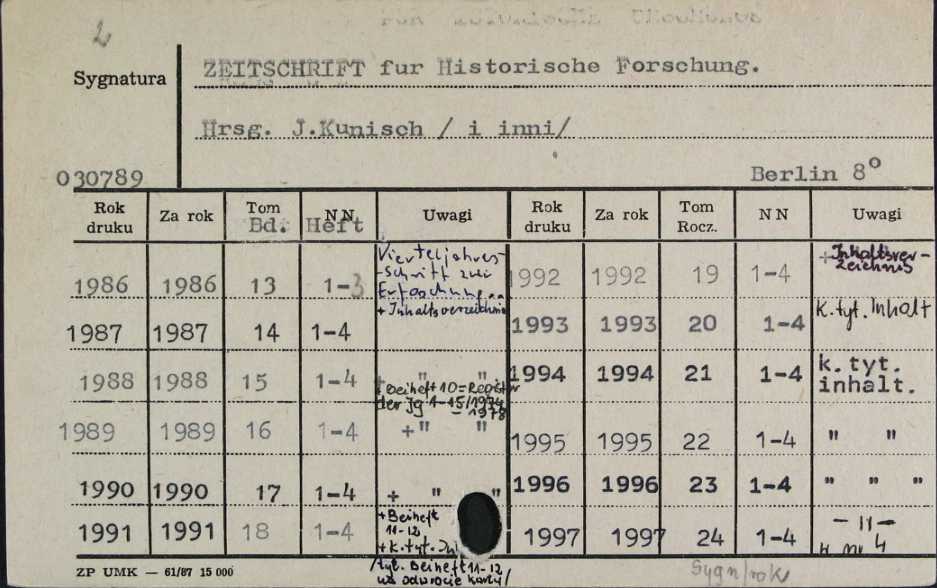 2
Sygnatura
ZEITSCHRIFT fur Historische Forschung.
Hrsg. J.Kunisch / i inni/
030789
Berlin 8°
Rok druku Za rok Tom Bd. NN Heft Uwagi Rok druku Za rok Tom Rocz. NN Uwagi
1986 1986 13 1-3 Vierteljahres-schrift zur 1992 1992 19 1-4 + Inhaltsver-zeichnis
1987 1987 14 1-4 + Inhaltsverzeichnis 1993 1993 20 1-4 K.tyt. Inhalt
1988 1988 15 1-4 + " " 1994 1994 21 1-4 k. tyt. inhalt.
+ Beiheft 10 = Register der Jg 1-15/1974-1978
1989 1989 16 1-4 +" " 1995 1995 22 1-4 " "
1990 1990 17 1-4 + " " 1996 1996 23 1-4 " " "
1991 1991 18 1-4 + Beiheft 11-12 + k.tyt. 1997 1997 24 1-4 - 11 - nr 4
/tyt. Beiheft 11-12
na odwrocie karty/
ZP UMK — 61/87 15 000
Sygn/rok